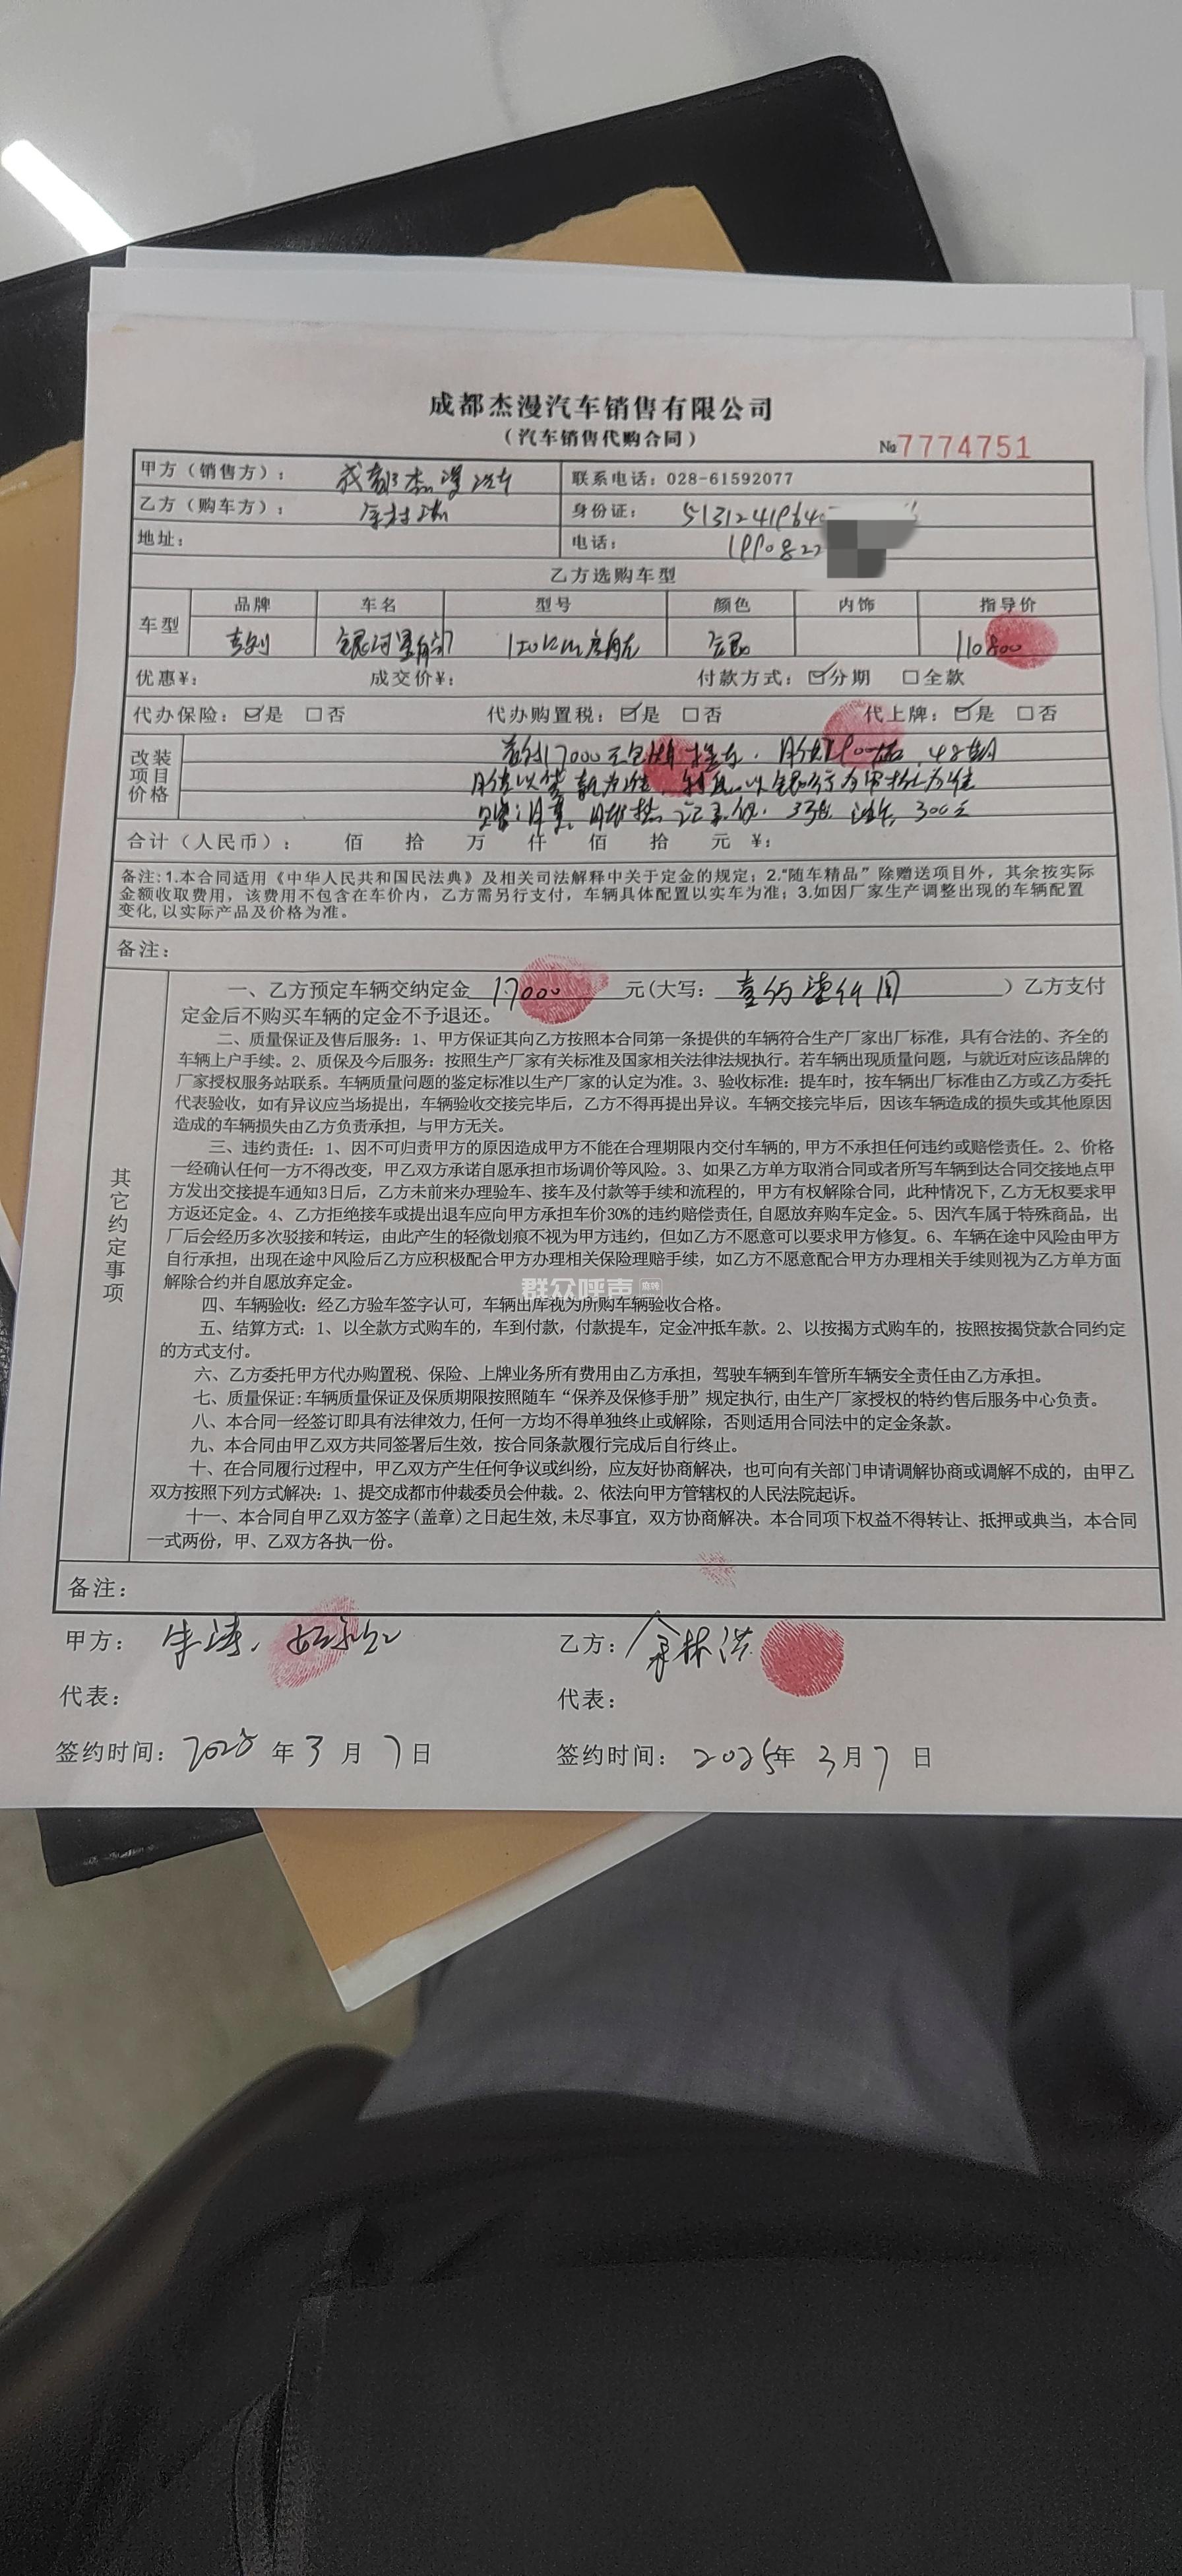 成都杰漫汽车销售有限公司
（汽车销售代购合同）
№7774751
甲方（销售方）： 成都杰漫汽车 联系电话：028-61592077
乙方（购车方）： 余林洪 身份证： 513124196
地址： 电话： 1990822
乙方选购车型
车型 品牌 车名 型号 颜色 内饰 指导价
吉利 银河星舰7 120km 110800
优惠¥： 成交价¥： 付款方式：☑分期 □全款
代办保险：☑是 □否 代办购置税：☑是 □否 代上牌：☑是 □否
改装项目价格 首付17000元包牌提车，月供 48期
月供以 款为准，利息以银行 为准
300元
合计（人民币）： 佰 拾 万 仟 佰 拾 元 ¥：
备注：1.本合同适用《中华人民共和国民法典》及相关司法解释中关于定金的规定；2.“随车精品”除赠送项目外，其余按实际
金额收取费用，该费用不包含在车价内，乙方需另行支付，车辆具体配置以实车为准；3.如因厂家生产调整出现的车辆配置
变化，以实际产品及价格为准。
备注：
其它约定事项
一、乙方预定车辆交纳定金 17000 元(大写： 壹万柒仟圆 ）乙方支付
定金后不购买车辆的定金不予退还。
二、质量保证及售后服务：1、甲方保证其向乙方按照本合同第一条提供的车辆符合生产厂家出厂标准，具有合法的、齐全的
车辆上户手续。2、质保及今后服务：按照生产厂家有关标准及国家相关法律法规执行。若车辆出现质量问题，与就近对应该品牌的
厂家授权服务站联系。车辆质量问题的鉴定标准以生产厂家的认定为准。3、验收标准：提车时，按车辆出厂标准由乙方或乙方委托
代表验收，如有异议应当场提出，车辆验收交接完毕后，乙方不得再提出异议。车辆交接完毕后，因该车辆造成的损失或其他原因
造成的车辆损失由乙方负责承担，与甲方无关。
三、违约责任：1、因不可归责甲方的原因造成甲方不能在合理期限内交付车辆的，甲方不承担任何违约或赔偿责任。2、价格
一经确认任何一方不得改变，甲乙双方承诺自愿承担市场调价等风险。3、如果乙方单方取消合同或者所写车辆到达合同交接地点甲
方发出交接提车通知3日后，乙方未前来办理验车、接车及付款等手续和流程的，甲方有权解除合同，此种情况下，乙方无权要求甲
方返还定金。4、乙方拒绝接车或提出退车应向甲方承担车价30%的违约赔偿责任，自愿放弃购车定金。5、因汽车属于特殊商品，出
厂后会经历多次驳接和转运，由此产生的轻微划痕不视为甲方违约，但如乙方不愿意可以要求甲方修复。6、车辆在途中风险由甲方
自行承担，出现在途中风险后乙方应积极配合甲方办理相关保险理赔手续，如乙方不愿意配合甲方办理相关手续则视为乙方单方面
解除合约并自愿放弃定金。
群众呼声
四、车辆验收：经乙方验车签字认可，车辆出库视为所购车辆验收合格。
五、结算方式：1、以全款方式购车的，车到付款，付款提车，定金冲抵车款。2、以按揭方式购车的，按照按揭贷款合同约定
的方式支付。
六、乙方委托甲方代办购置税、保险、上牌业务所有费用由乙方承担，驾驶车辆到车管所车辆安全责任由乙方承担。
七、质量保证：车辆质量保证及保质期限按照随车“保养及保修手册”规定执行，由生产厂家授权的特约售后服务中心负责。
八、本合同一经签订即具有法律效力，任何一方均不得单独终止或解除，否则适用合同法中的定金条款。
九、本合同由甲乙双方共同签署后生效，按合同条款履行完成后自行终止。
十、在合同履行过程中，甲乙双方产生任何争议或纠纷，应友好协商解决，也可向有关部门申请调解协商或调解不成的，由甲乙
双方按照下列方式解决：1、提交成都市仲裁委员会仲裁。2、依法向甲方管辖权的人民法院起诉。
十一、本合同自甲乙双方签字(盖章)之日起生效，未尽事宜，双方协商解决。本合同项下权益不得转让、抵押或典当，本合同
一式两份，甲、乙双方各执一份。
备注：
甲方： 乙方： 余林洪
代表： 代表：
签约时间：2025 年 3 月 7 日 签约时间： 2025年 3月7 日